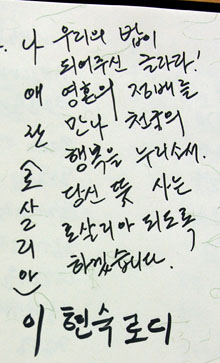 나애란(로살리아)
우리의 밥이
되어주신 글라라!
영혼의 정배를
만나 천국의
행복을 누리소서.
당신 뜻 사는
로살리아 되도록
하겠습니다.
이현숙 로디